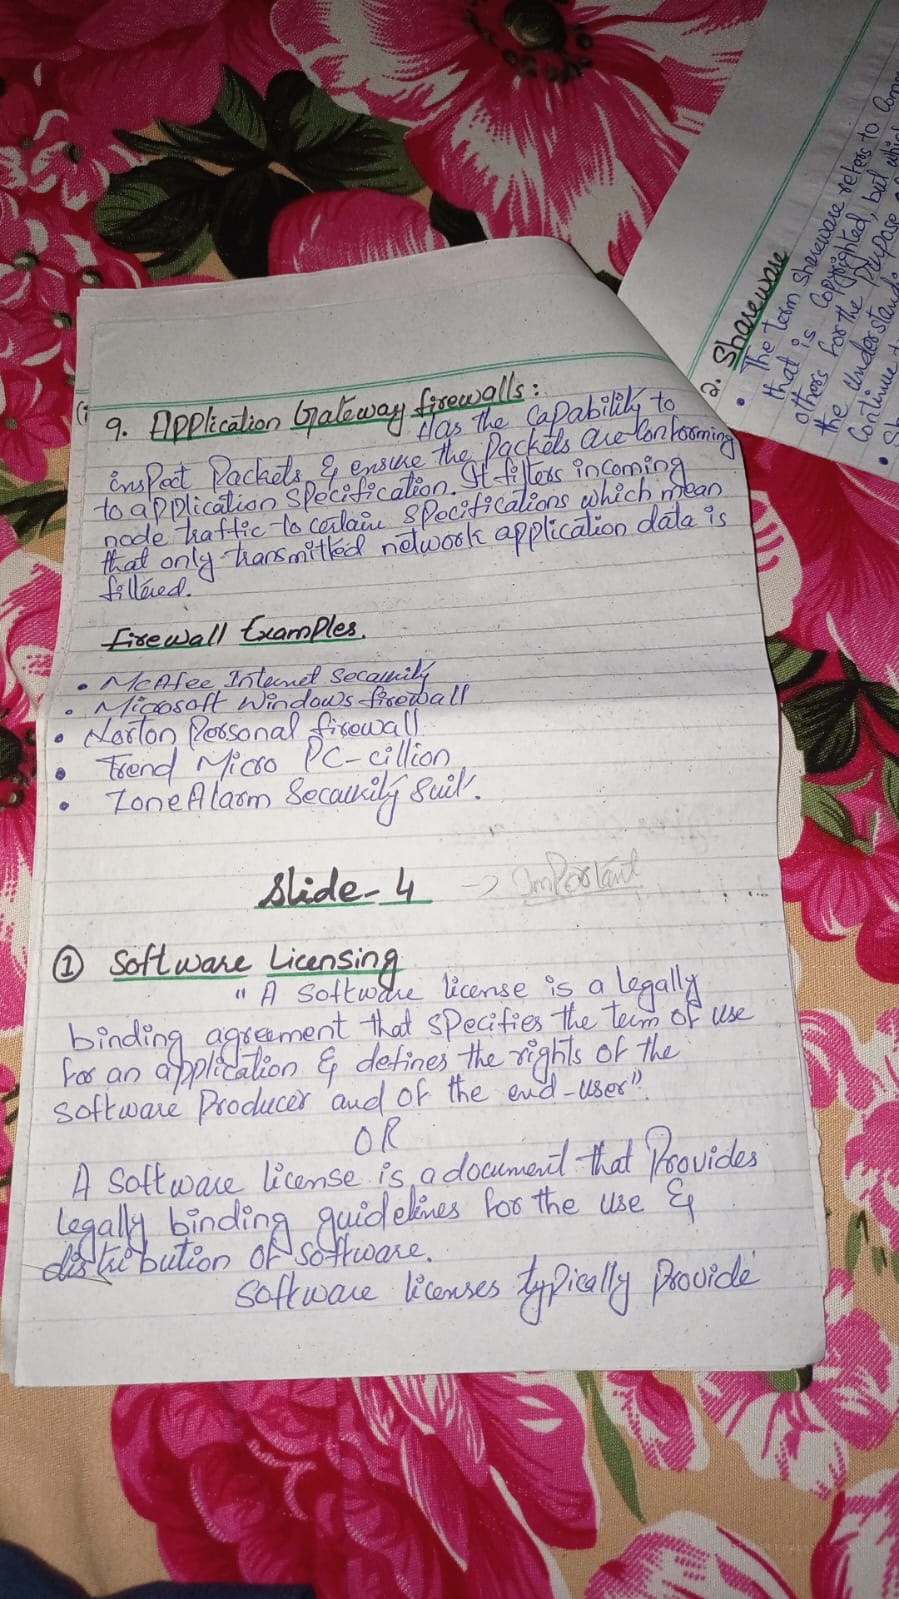 9. Application Gateway firewalls:
Has the capability to
inspect Packets & ensure the Packets are Conforming
to application Specification. It filters incoming
node traffic to certain specifications which mean
that only transmitted network application data is
filtered.
firewall Examples.
• McAfee Internet Secaurity
• Microsoft Windows firewall
• Norton Personal firewall
• Trend Micro PC-cillion
• ZoneAlarm Secaurity Suit.
Slide-4 -> Important
① Software Licensing
" A Software license is a legally
binding agreement that specifies the term of use
for an application & defines the rights of the
software Producer and of the end-user".
OR
A Software license is a document that Provides
legally binding guidelines for the use &
distribution of software.
Software licenses typically provide
2. Shareware
• The term shareware refers to
that is Copyrighted, but which
others for the purpose
the understand
Continue